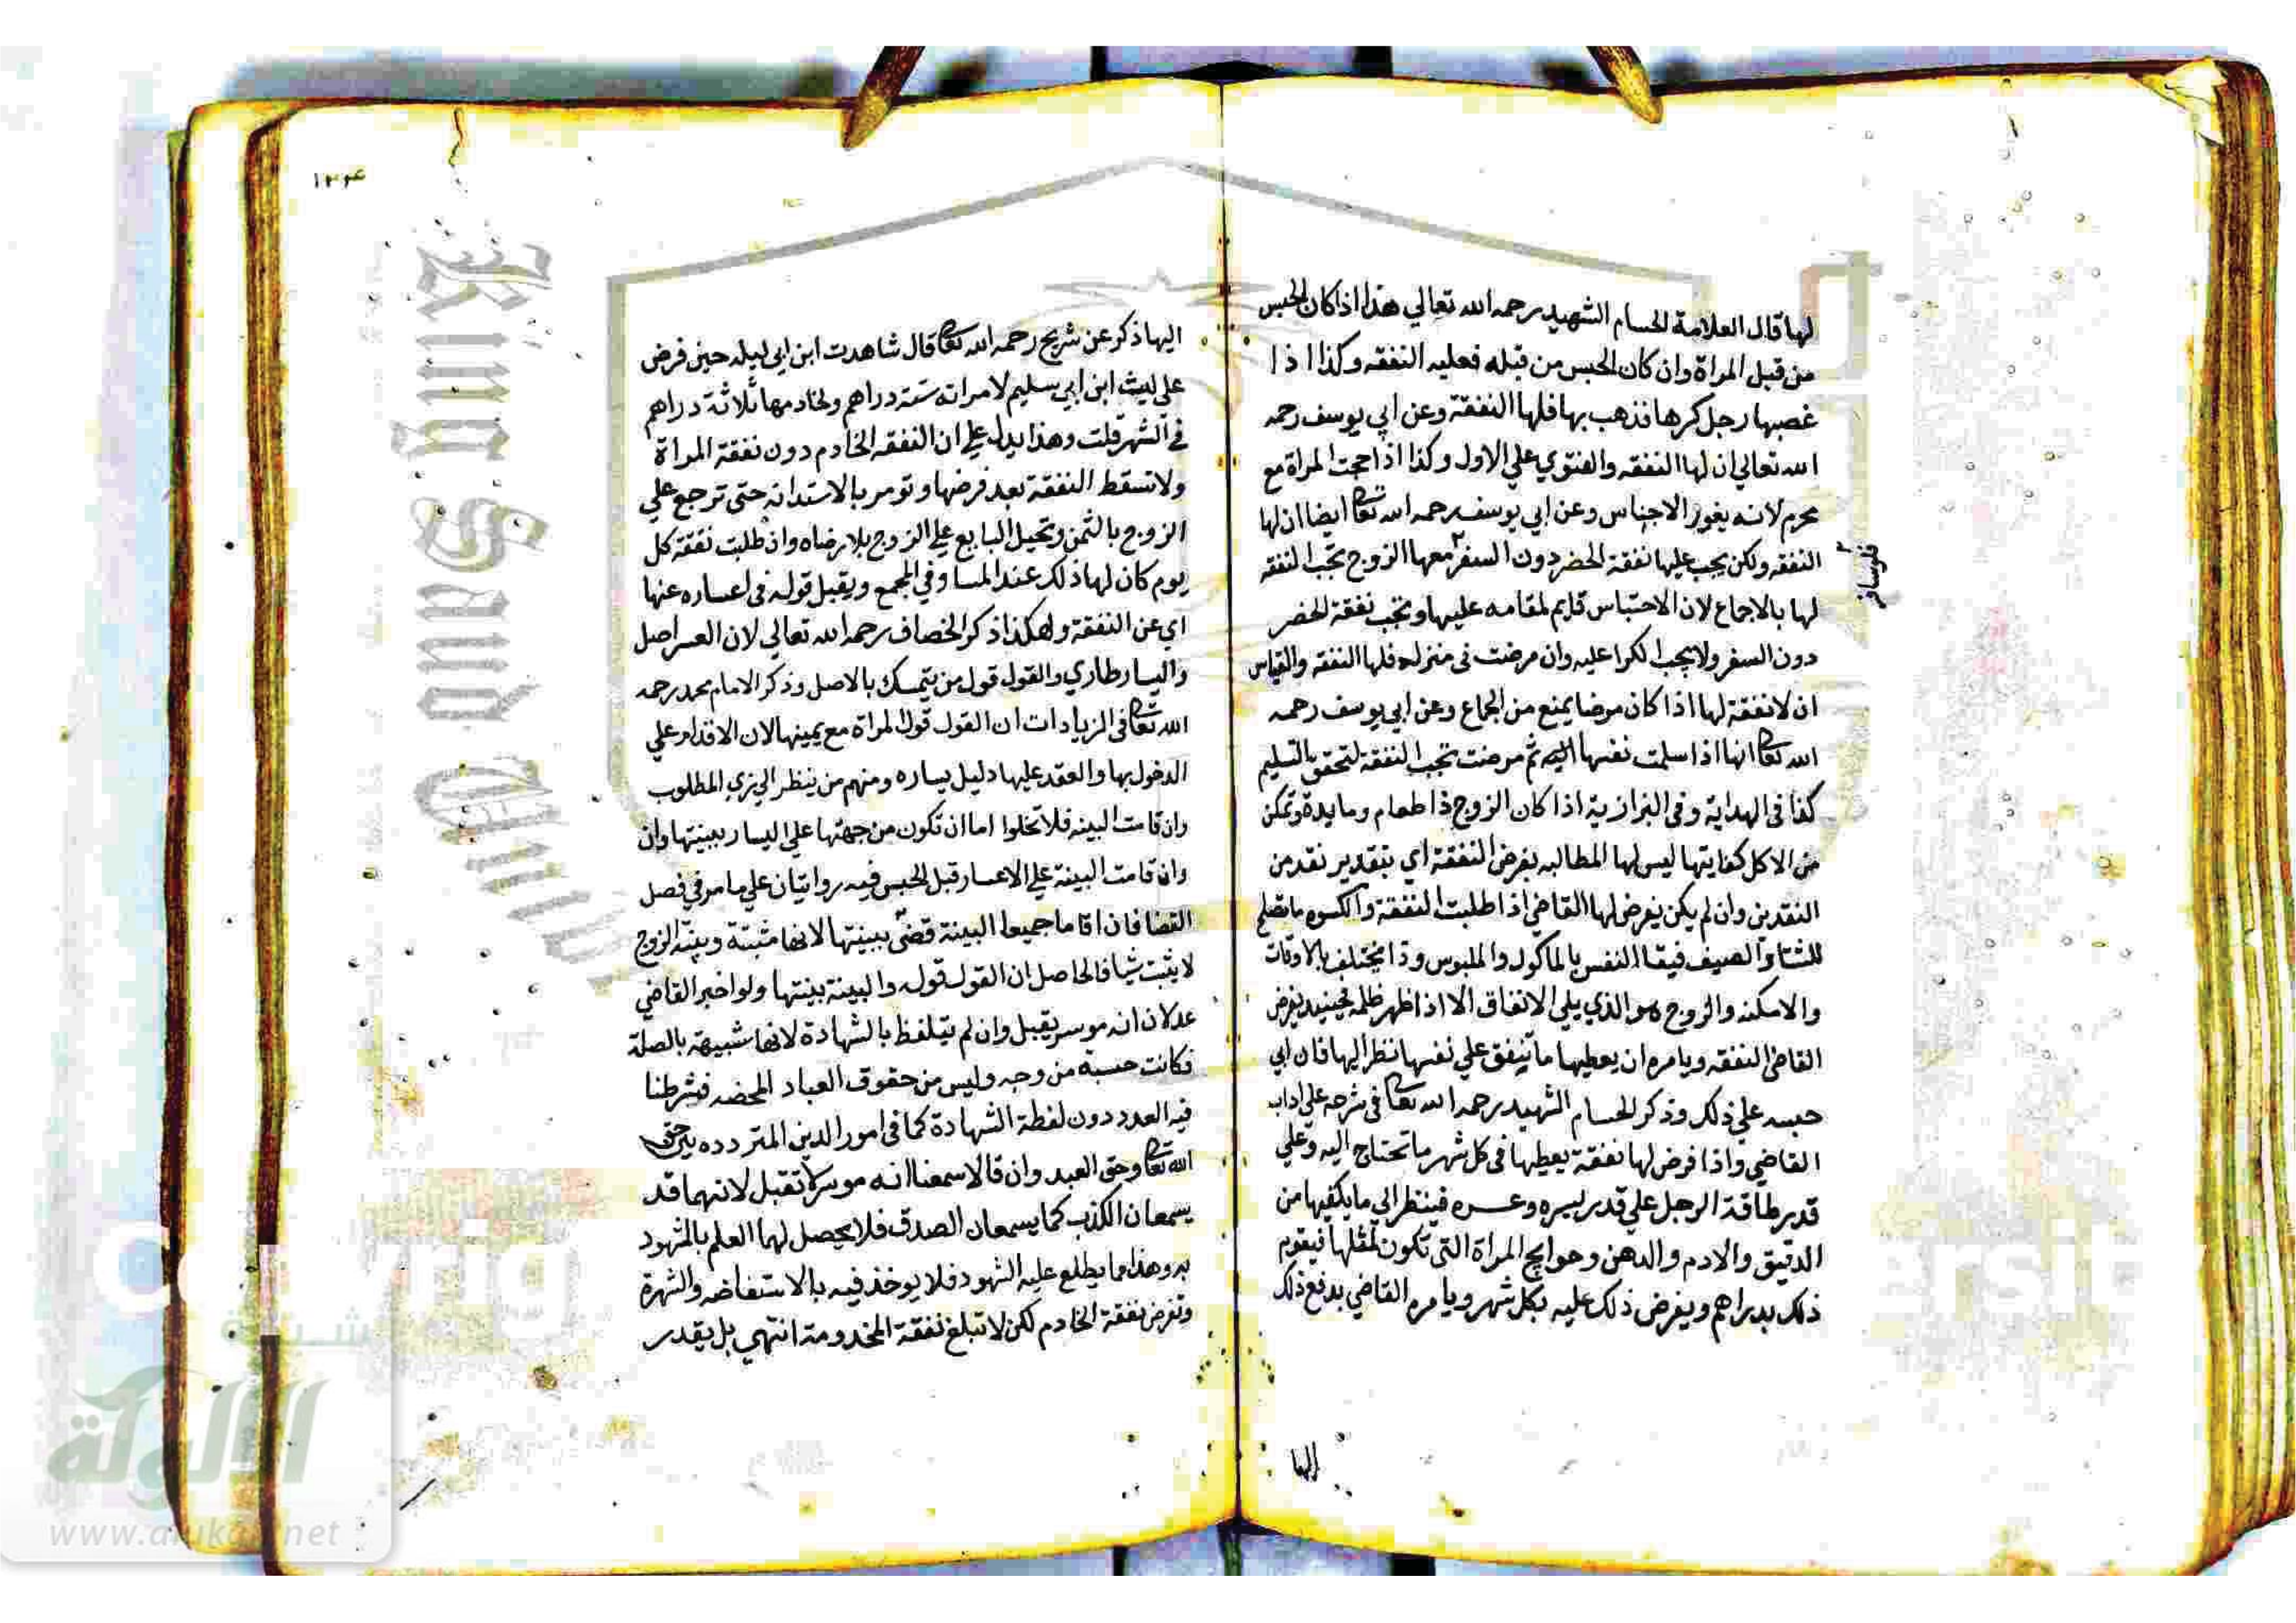 لها قال العلامة الحسام الشهيد رحمه الله تعالي هذا اذا كان الحبس
من قبل المراة وان كان الحبس من قبله فعليه النفقه وكذا اذا
غصبها رجل كرها فذهب بها فلها النفقة وعن ابي يوسف رحمه
الله تعالي ان لها النفقه والفتوي علي الاول وكذا اذا حجت المراة مع
محرم لانه يفوز الاحباس وعن ابي يوسف رحمه الله تعا ايضا ان لها
النفقه ولكن يجب عليها نفقة الحضر دون السفر معها الزوج تجب النفقه
فلو سافر
لها بالاجماع لان الاحتباس قايم لمقامه عليها وتجب نفقة الحضر
دون السفر ولا يجب الكرا عليه وان مرضت في منزله فلها النفقه والقياس
ان لا نفقة لها اذا كان مرضا يمنع من الجماع وعن ابي يوسف رحمه
الله تعا انها اذا سلمت نفسها اليه ثم مرضت تجب النفقة لتحقق التسليم
كذا في الهداية وفي البزازية اذا كان الزوج ذا طعام ومايدة وتمكن
من الاكل كفايتها ليس لها المطالبه بفرض النفقة اي بتقدير نقد من
النقدين وان لم يكن يفرض لها القاضي اذا طلبت النفقة والكسوه ما تصلح
للشتا والصيف فبقا النفس بالماكول والملبوس وذا يختلف بالاوقات
والامكنه والزوج هو الذي يلي الانفاق الا اذا ظهر ظلمه فحينيد يفرض
القاضي النفقه ويامره ان يعطيها ما تنفق علي نفسها نظرا اليها فان ابي
حبسه علي ذلك وذكر الحسام الشهيد رحمه الله تعا في شرحه علي اداب
القاضي واذا فرض لها نفقة يعطيها في كل شهر ما تحتاج اليه وعلي
قدر طاقة الرجل علي قدر يسره وعسره فينظر الي ما يكفيها من
الدقيق والادم والدهن وحوايج المراة التي تكون لمثلها فيقوم
ذلك بدراهم ويفرض ذلك عليه بكل شهر ويامره القاضي بدفع ذلك
اليها
١٢٤
اليها ذكر عن شريح رحمه الله تعا قال شاهدت ابن ابي ليله حين فرض
علي ليث ابن ابي سليم لامراته ستة دراهم ولخادمها ثلاثة دراهم
في الشهر قلت وهذا يدل علي ان النفقه الخادم دون نفقة المراة
ولا تسقط النفقة بعد فرضها وتومر بالاستدانة حتي ترجع علي
الزوج بالثمن وتحيل البايع علي الزوج بلا رضاه واذ طلبت نفقة كل
يوم كان لها ذلك عند المسا وفي المجمع ويقبل قوله في اعساره عنها
اي عن النفقة وهكذا ذكر الخصاف رحمه الله تعالي لان العسر اصل
واليسار طاري والقول قول من يتمسك بالاصل وذكر الامام محمد رحمه
الله تعا في الزيادات ان القول قول المراة مع يمينها لان الاقدام علي
الدخول بها والعقد عليها دليل يساره ومنهم من ينظر الي زي المطلوب
وان قامت البينه فلا تخلوا اما ان تكون من جهتها علي اليسار ببينتها وان
وان قامت البينة علي الاعسار قبل الحبس فيه روايتان علي ما مر في فصل
القضا فان اقاما جميعا البينة قضي ببينتها لانها مثبتة وبينة الزوج
لا يثبت شيا فالحاصل ان القول قوله والبينة بينتها ولو اخبر القاضي
عدلان انه موسر يقبل وان لم يتلفظ بالشهادة لانها شبيهة بالصلة
فكانت حسبة من وجه وليس من حقوق العباد المحضه فشرطنا
فيه العدد دون لفظة الشهادة كما في امور الدين المتردده بين حق
الله تعا وحق العبد وان قالا سمعنا انه موسر لا تقبل لانهما قد
يسمعان الكذب كما يسمعان الصدق فلا يحصل لهما العلم بالمشهود
به وهذا مما يطلع عليه الشهود فلا يوخذ فيه بالاستفاضه والشهرة
وتفرض نفقة الخادم لكن لا تبلغ نفقة المخدومة انتهي بل يقدر
King Saud
شبكة
الألوكة
www.alukah.net